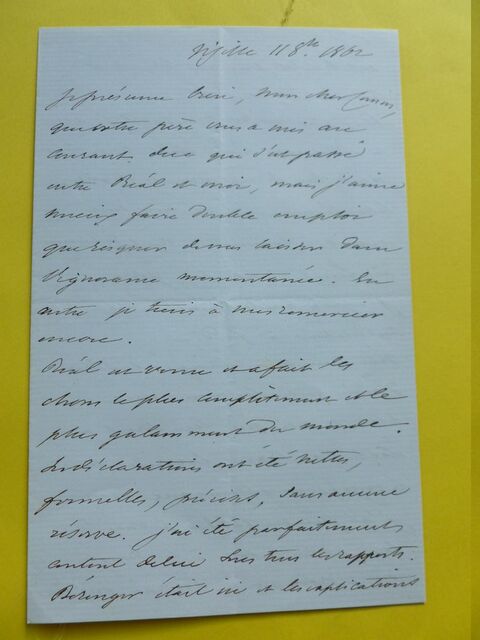 Vizille 11 8bre 1862
Je présume bien, mon cher
que votre père vous a mis au
courant de ce qui s'est passé
entre Réal et moi, mais j'aime
mieux faire double emploi
que risquer de vous laisser dans
l'ignorance momentanée. En
outre je tiens à vous remercier
encore.
Réal est venu et a fait les
choses le plus complètement et le
plus galamment du monde.
Ses déclarations ont été nettes,
formelles, précises, sans aucune
réserve. j'ai été parfaitement
content de lui sous tous les rapports.
Bérenger était ici et les explications